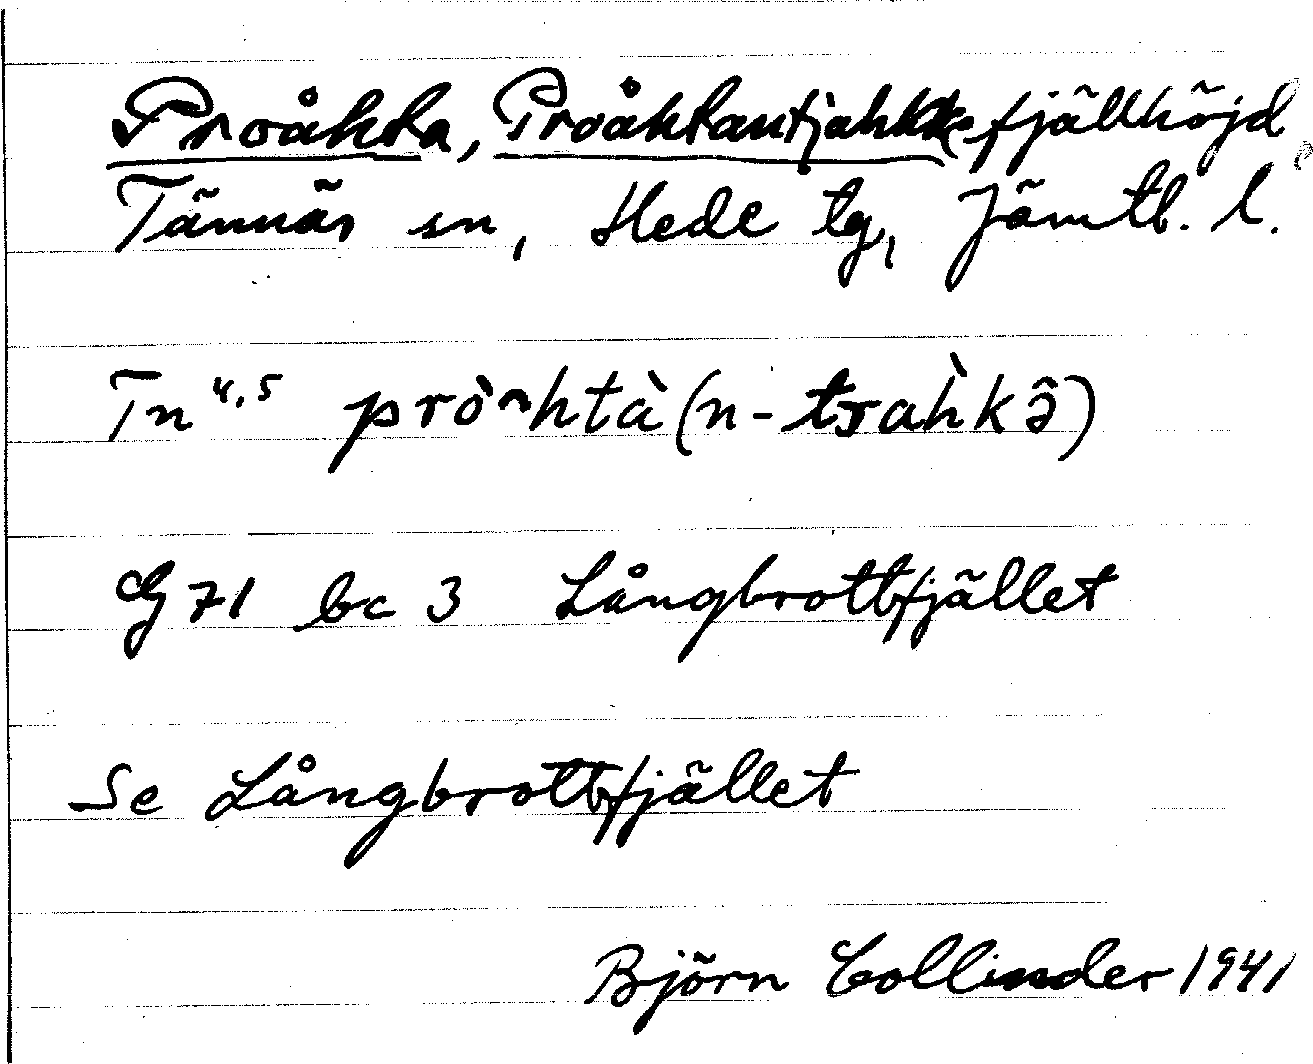 Proåhta, Proåhtantjahkke, fjällhöjd
Tännäs sn, Hede tg, Jämtl. l.
Tn 4,5 prò̀ahtà (n-tsàhkə̂)
G 71 bc 3 Långbrottfjället
Se Långbrottfjället
Björn Collinder 1941